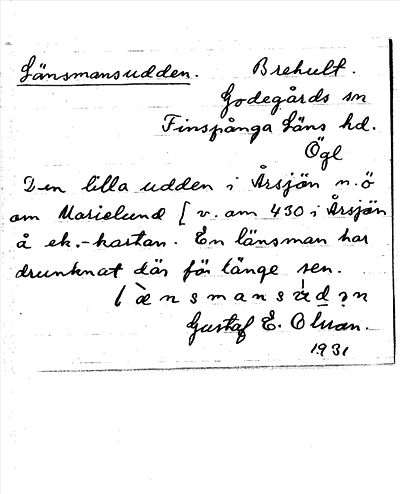 Länsmansudden. Brehult.
Godegårds sn
Finspånga läns hd.
Ögl
Den lilla udden i Årsjön n.ö
om Marielund [ v. om 430 i Årsjön
å ek.-kartan. En länsman har
drunknat där för länge sen.
lænsmans
Gustaf E. Olsson.
1931